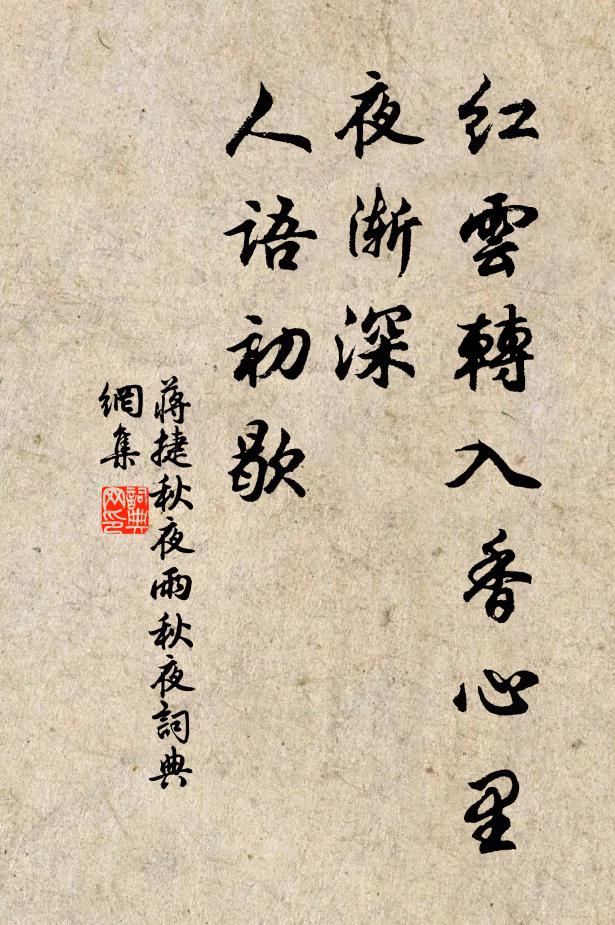 紅雲轉入香心里
夜漸深
人語初歇
蔣捷秋夜雨秋夜詞典
網集
詞典
网印